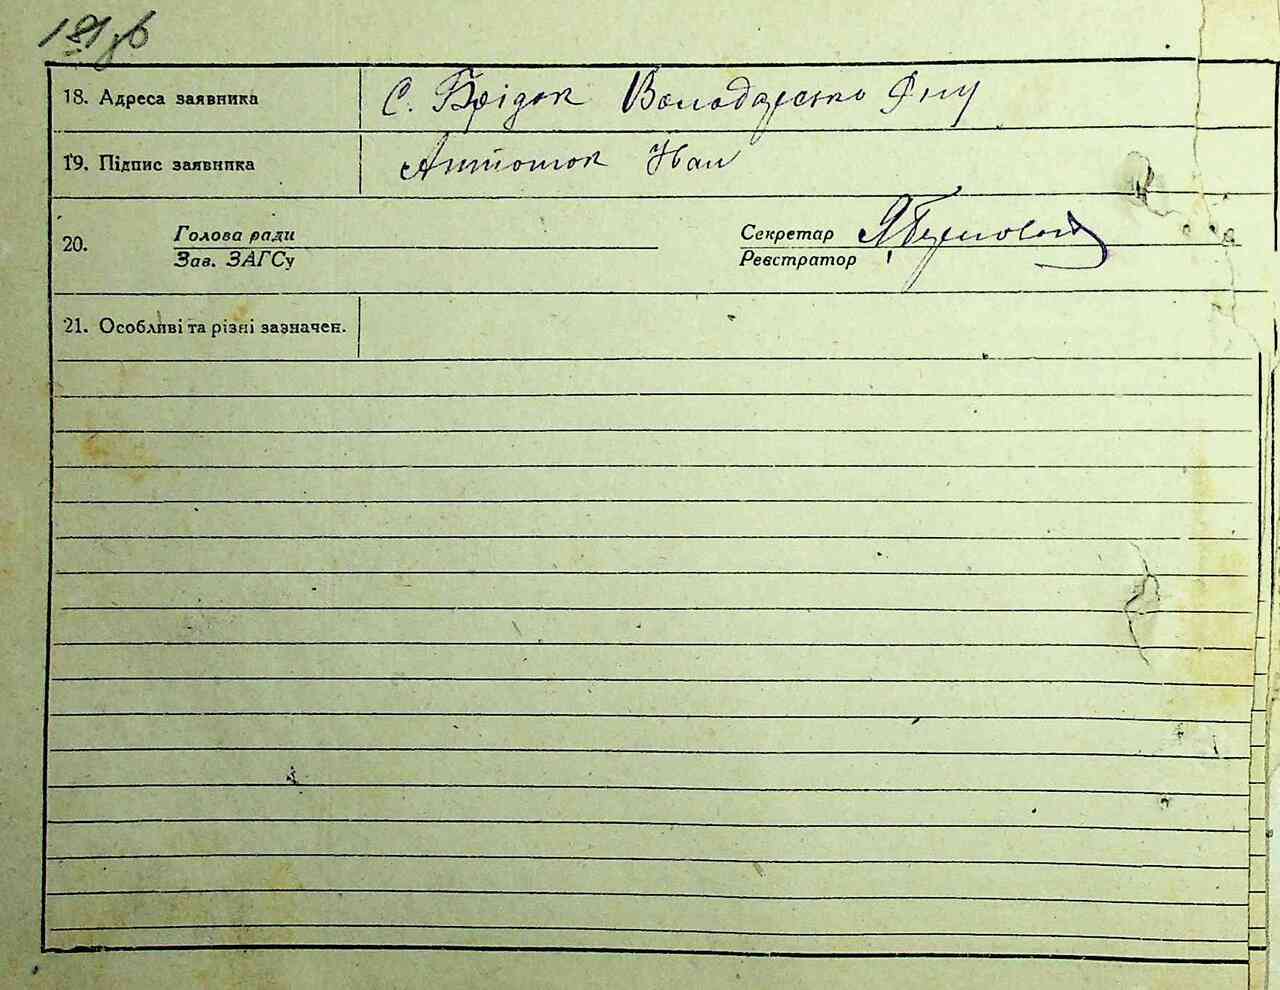 181 зв
18. Адреса заявника С. Брідок Володарсько Р-ну
19. Підпис заявника Антонюк Іван
20. Голова ради Секретар
Зав. ЗАГСу Реєстратор
21. Особливі та різні зазначен.